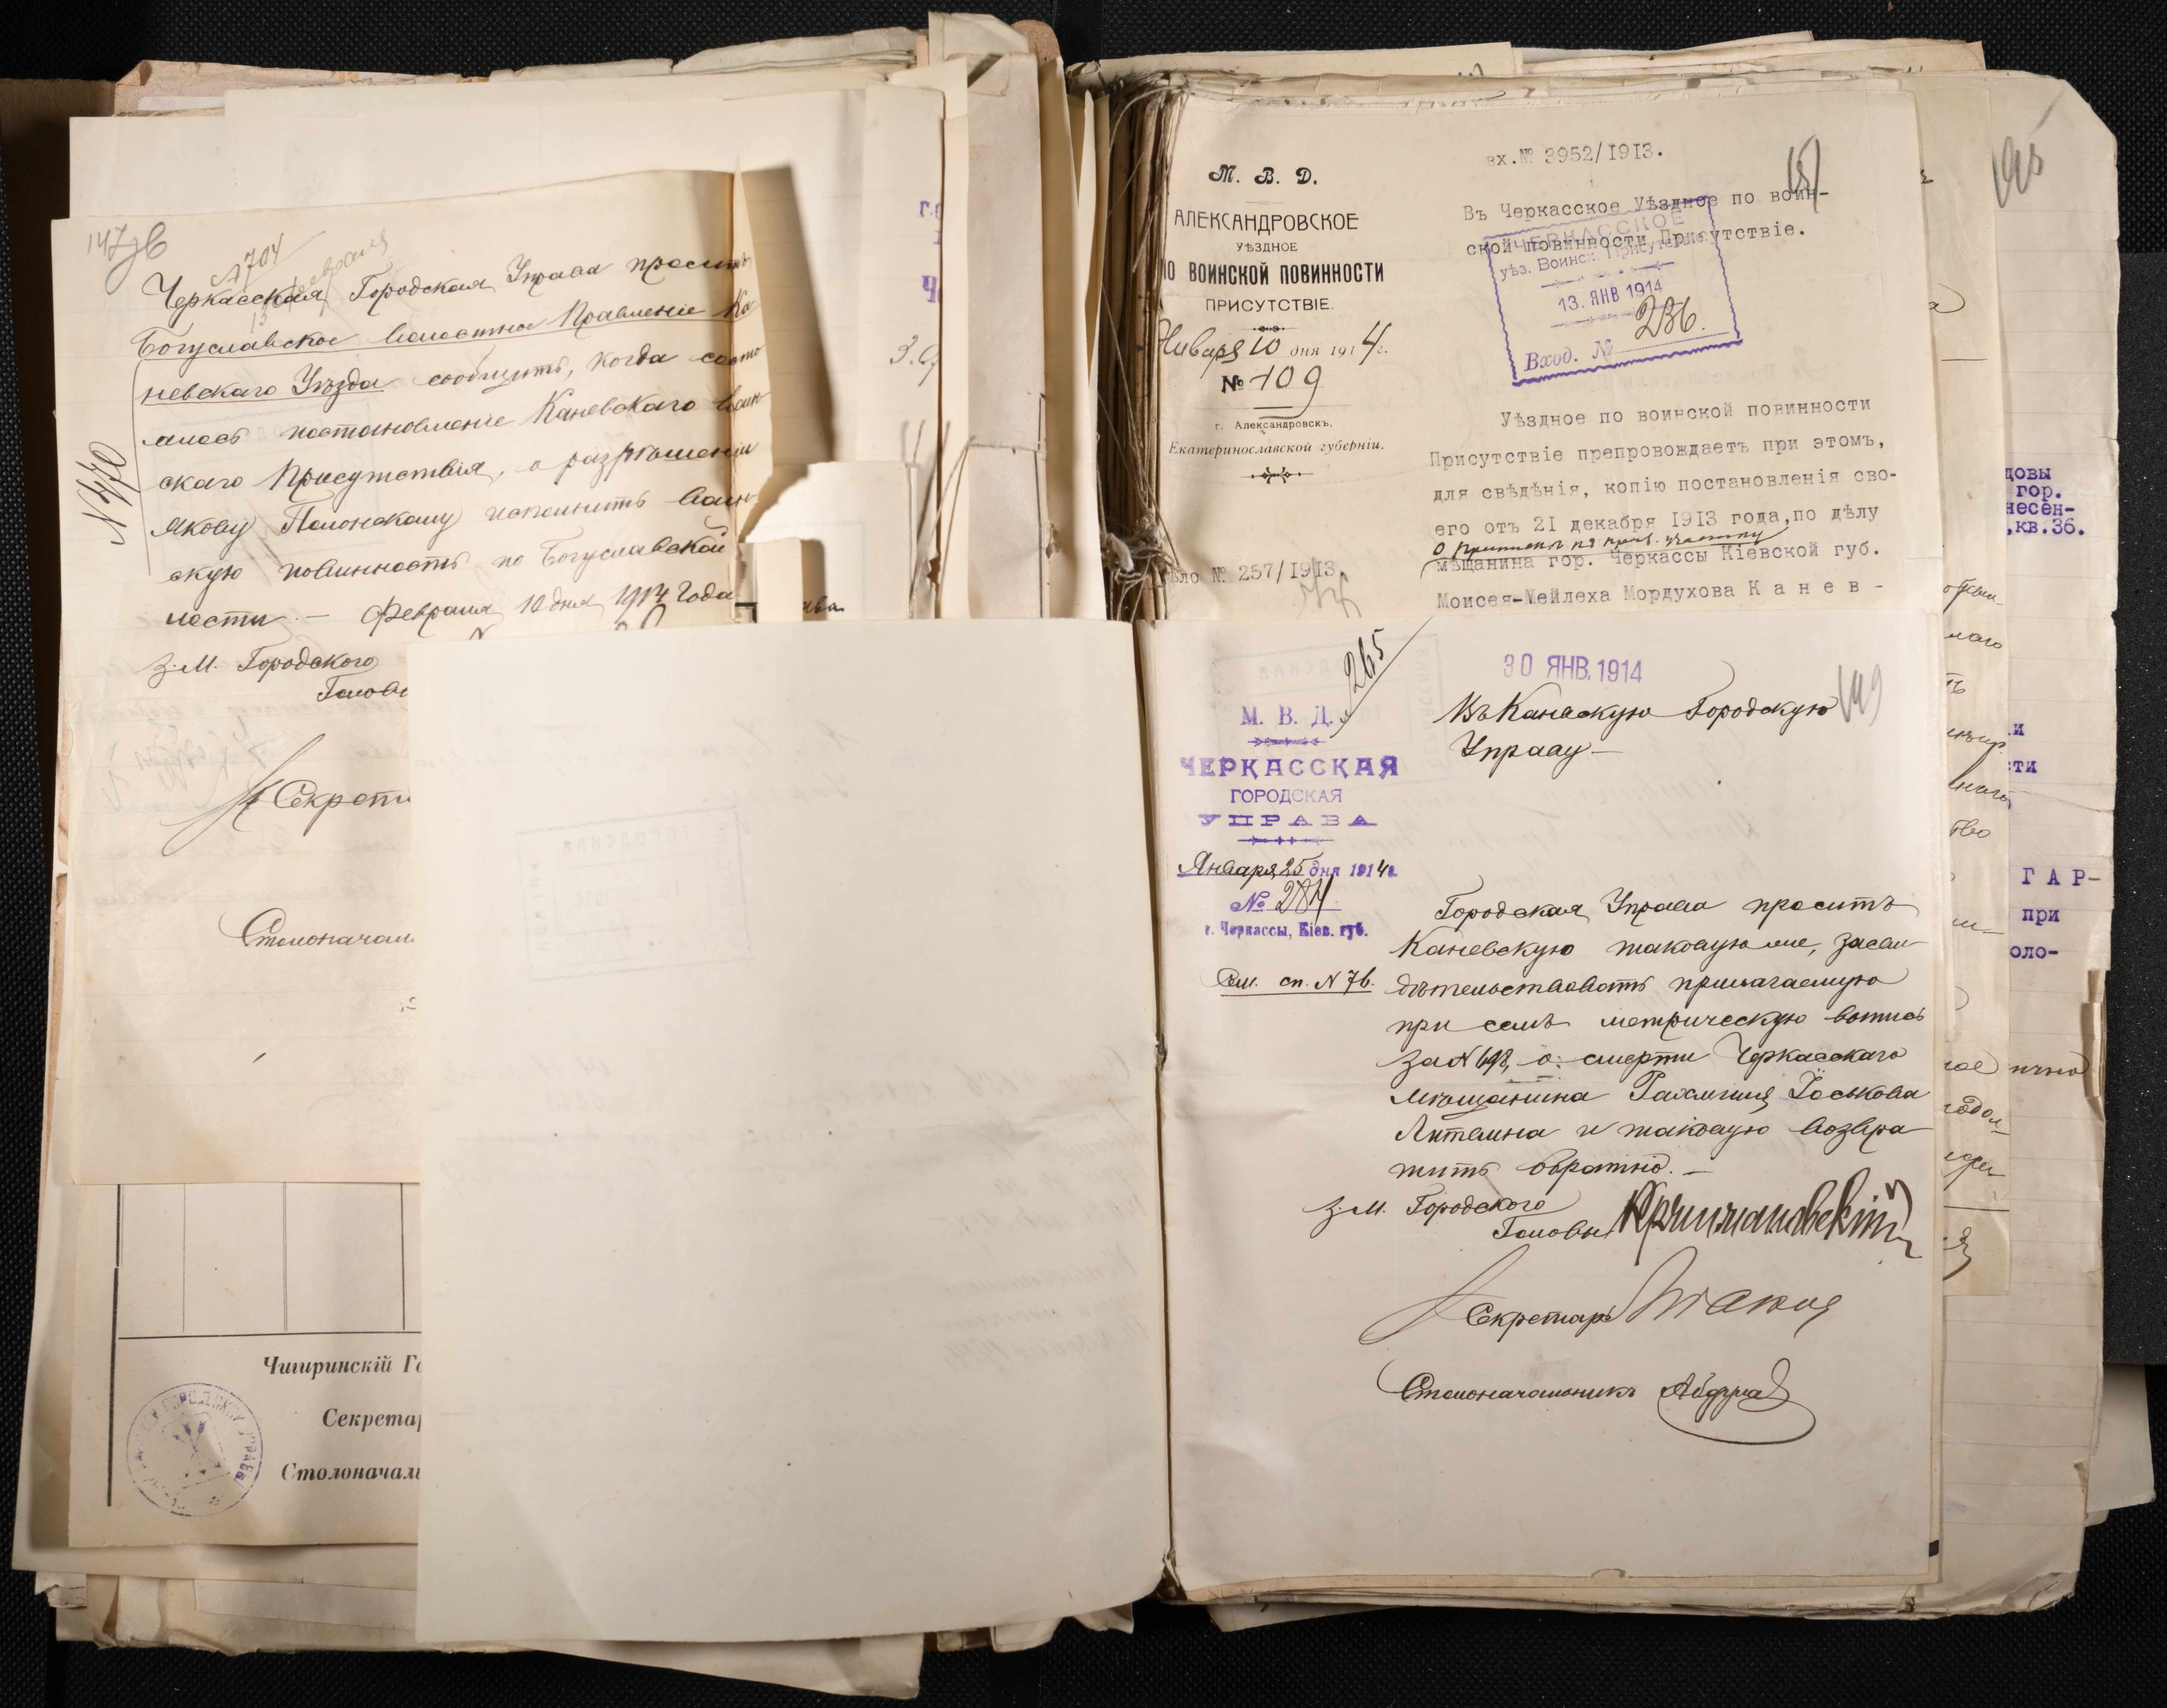 147 об
№ 704
Черкасская Городская Управа просить
Богуславское Волостное Правленіе Ка-
невскаго Уѣзда сообщить, когда состо
ялось постановленіе Каневскаго Воин
скаго Присутствія, о разрѣшеніи
Якову Полонскому исполнить Воин
скую повинность по Богуславской
лости. — Февраля 10 дня 1914 Года
N 470
З. М. Городского
Голов
Секрета
Столоначал
Чигиринскій Го
Секретар
Столоначаль
М. В. Д.
АЛЕКСАНДРОВСКОЕ
УѢЗДНОЕ
ПО ВОИНСКОЙ ПОВИННОСТИ
ПРИСУТСТВІЕ.
Января 10 дня 1914 г.
№ 109
г. Александровскъ,
Екатеринославской губерніи.
ѣло № 257/1913.
вх.№ 3952/1913.
151
Въ Черкасское Уѣздное по воин-
ской повинности Присутствіе.
ЧЕРКАССКОЕ
уѣз. Воинск. Присутствіе
13. ЯНВ 1914
Вход. № 236.
Уѣздное по воинской повинности
Присутствіе препровождаетъ при этомъ,
для свѣдѣнія, копію постановленія сво-
его отъ 21 декабря 1913 года,по дѣлу
мѣщанина гор. Черкассы Кіевской губ.
Моисея-Мейлеха Мордухова К а н е в -
265
30 ЯНВ. 1914
149
М. В. Д.
ЧЕРКАССКАЯ
ГОРОДСКАЯ
УПРАВА
Января 25 дня 1914 г.
№ 284
г. Черкассы, Кіев. губ.
См. сп. N 76.
Въ Каневскую Городскую
Управу —
Городская Управа проситъ
Каневскую таковую же, засви
дѣтельствовать прилагаемую
при семъ метрическую выпись
за N 698, о смерти Черкасскаго
мѣщанина Рахмиля Іоськова
Литвина и таковую возвра
тить обратно. —
З. М. Городского
Головы
Секретарь
Столоначальникъ
195
довы
гор.
несен-
,кв.36.
и
сти
Г А Р-
при
оло-